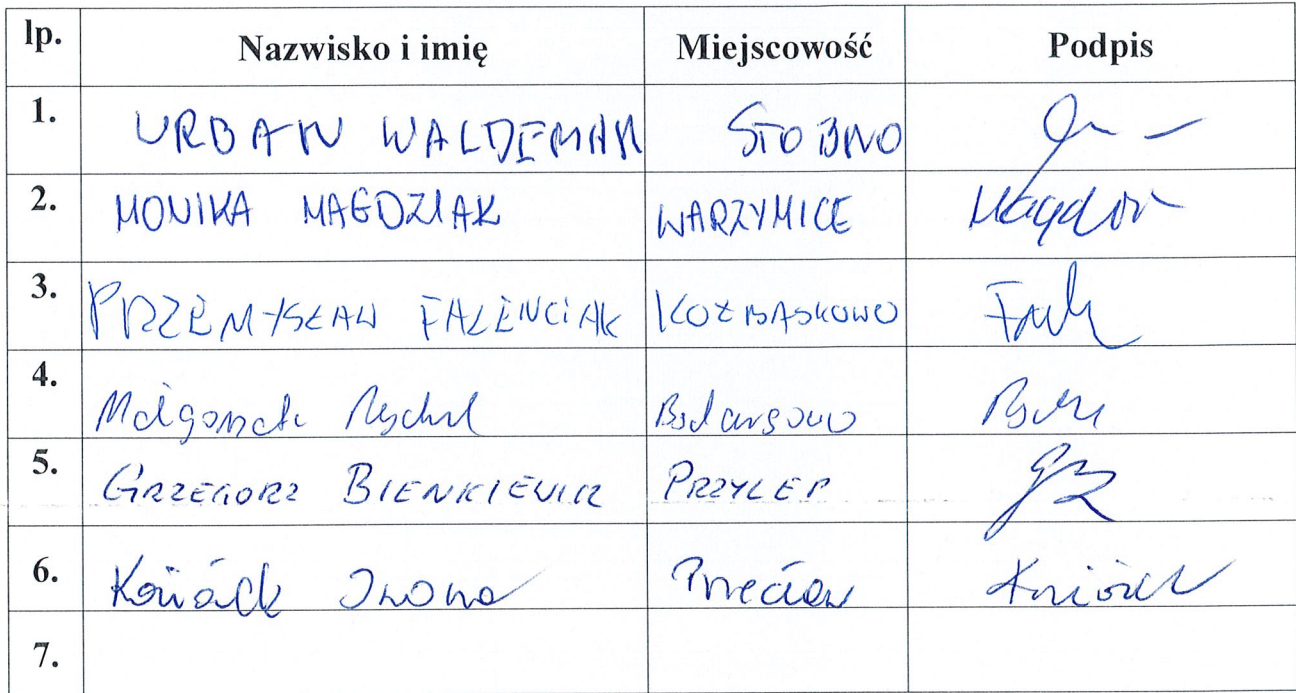 lp. Nazwisko i imię Miejscowość Podpis
1. URBAN WALDEMAR STOBNO
2. MONIKA MAGDZIAK WARZYMICE
3. PRZEMYSŁAW FALENCIAK KOŁBASKOWO
4. Małgorzata Będargowo
5. GRZEGORZ BIENKIEWICZ PRZYLEP
6. Iwona Przecław
7.